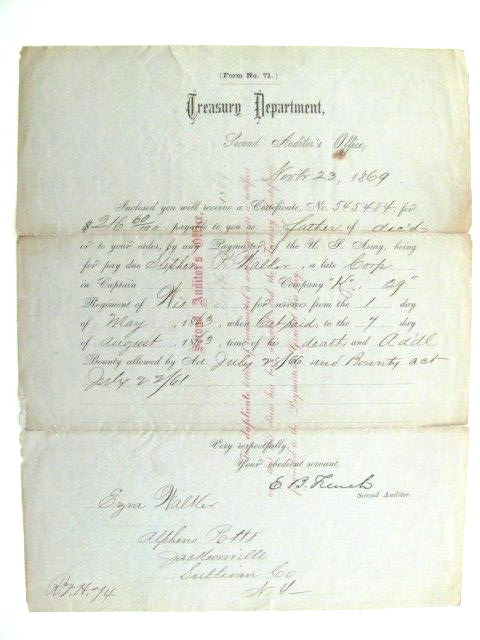 (Form No. 71.)
Treasury Department,
Second Auditor's Office,
Novbr 23, 1869.
Inclosed you will receive a Certificate, No. 545484, for
$216 60/100, payable to you as father of dec'd
or to your order, by any Paymaster of the U. S. Army, being
for pay due Stephen R. Walker, a late Corp
in Captain Company "K", 29"
Regiment of Wis for services from the 1 day
of May, 1863, when last paid, to the 7 day
of August, 1863, time of his death, and Add'l
Bounty allowed by Act July 28/66 and Bounty act
July 22/61
Very respectfully,
Your obedient servant,
E. B. French
Second Auditor.
Ezra Walker
Alpheus Potts
Jacksonville
Sullivan Co
N. Y.
Second Auditor's Office,